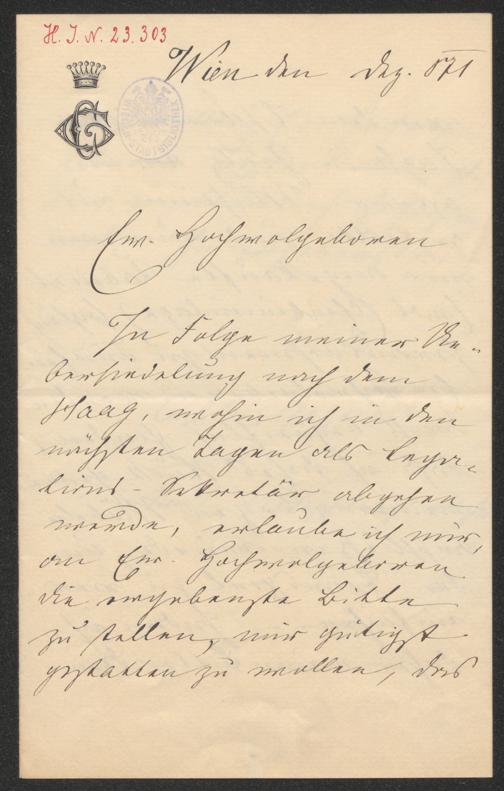 H. I. N. 23.303
Wien den Dez. 871
Euer Hochwolgeboren
In Folge meiner Ue-
bersiedelung nach dem
Haag, wohin ich in den
nächsten Tagen als Lega-
tions-Sekretär abgehen
werde, erlaube ich mir,
an Euer Hochwolgeboren
die ergebenste Bitte
zu stellen, mir gütigst
gestatten zu wollen, das